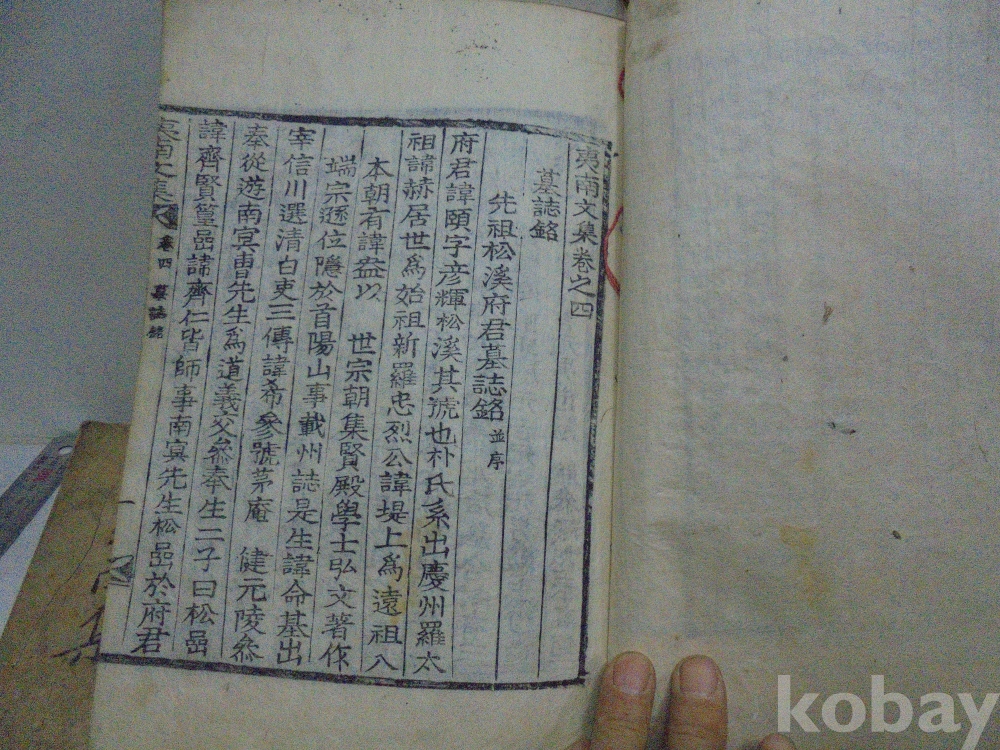 夷南文集卷之四
墓誌銘
先祖松溪府君墓誌銘 並序
府君諱頤字彦輝松溪其號也朴氏系出慶州羅太
祖諱赫居世爲始祖新羅忠烈公諱堤上爲遠祖入
本朝有諱益以 世宗朝集賢殿學士弘文著作
端宗遜位隱於首陽山事載州誌是生諱命基出
宰信川選清白吏三傳諱希參號茅庵 健元陵叅
奉從遊南冥曺先生爲道義交叅奉生二子曰松嵒
諱齊賢篁嵒諱齊仁皆師事南冥先生松嵒於府君
夷南文集 卷四 墓誌銘 一
kobay